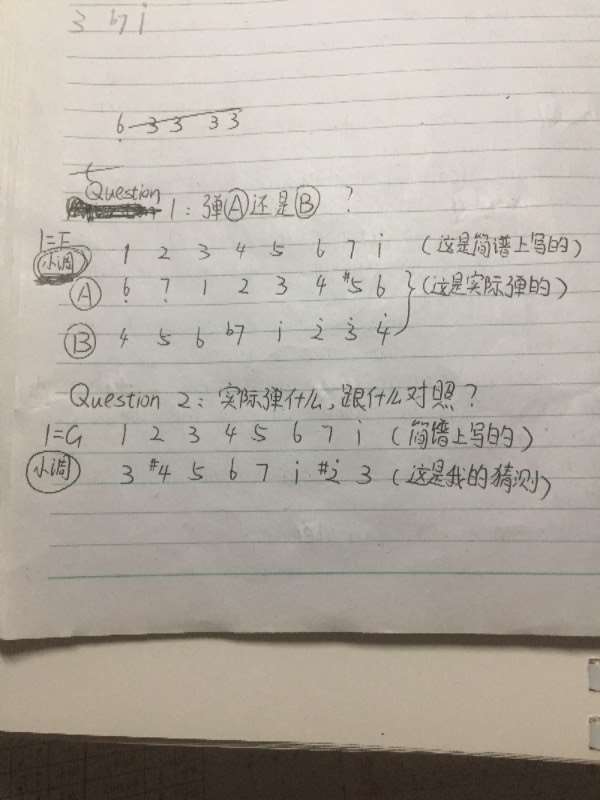 3 ♭7 i
6 3 3 3 3
Question 1：弹Ⓐ还是Ⓑ？
1=F 1 2 3 4 5 6 7 i （这是简谱上写的）
小调
Ⓐ 6̣ 7̣ 1 2 3 4 #5 6 （这是实际弹的）
Ⓑ 4 5 6 ♭7 i 2̇ 3̇ 4̇
Question 2：实际弹什么，跟什么对照？
1=G 1 2 3 4 5 6 7 i （简谱上写的）
小调 3 #4 5 6 7 i #2̇ 3 （这是我的猜测）